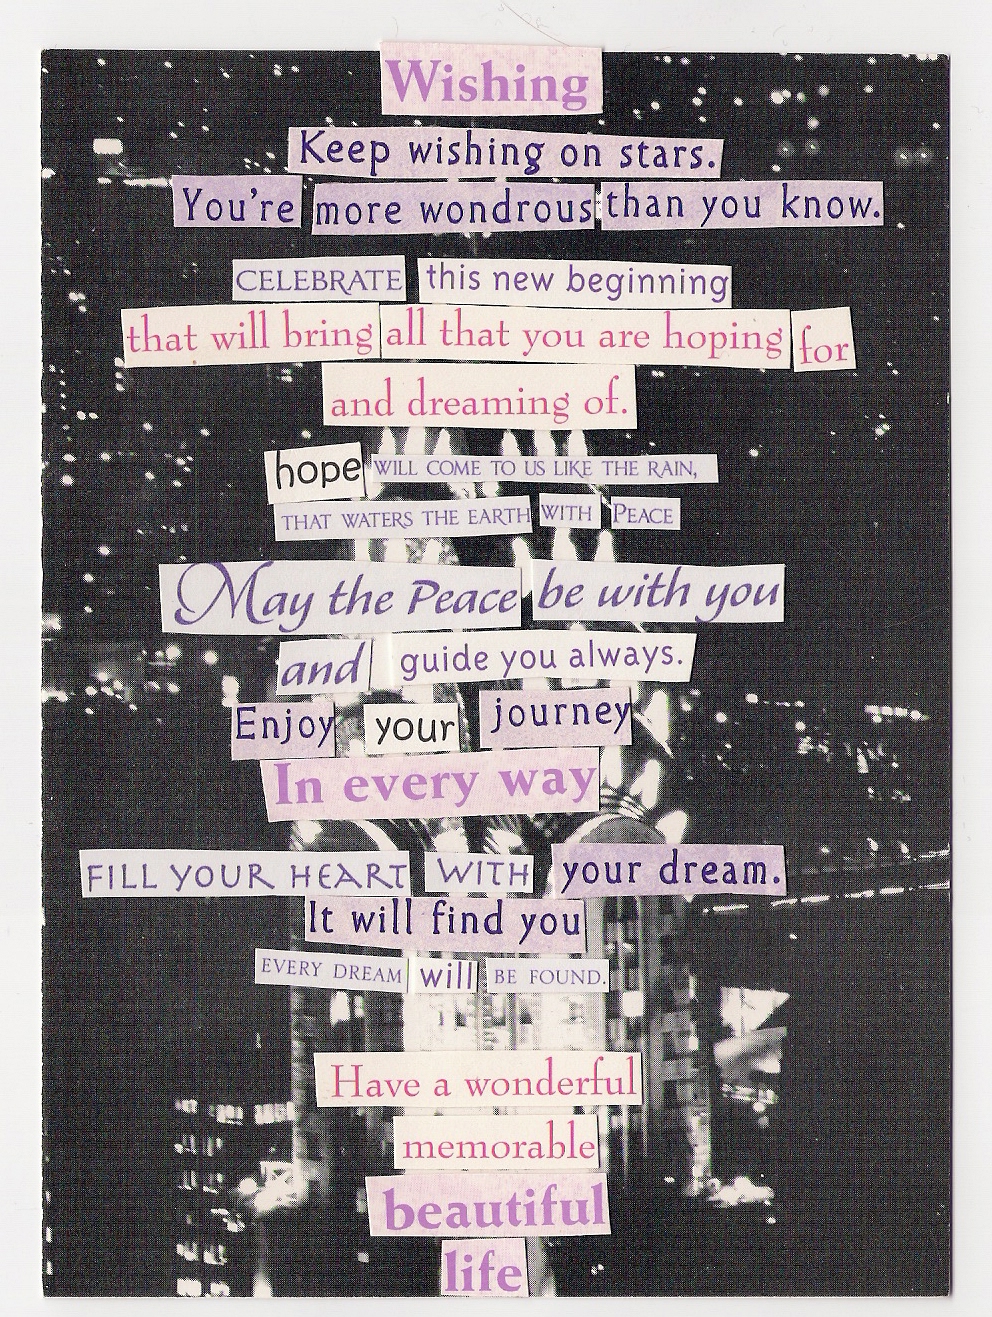 Wishing
Keep wishing on stars.
You're more wondrous than you know.
CELEBRATE this new beginning
that will bring all that you are hoping for
and dreaming of.
hope WILL COME TO US LIKE THE RAIN,
THAT WATERS THE EARTH WITH PEACE
May the Peace be with you
and guide you always.
Enjoy your journey
In every way
FILL YOUR HEART WITH your dream.
It will find you
EVERY DREAM will BE FOUND.
Have a wonderful
memorable
beautiful
life